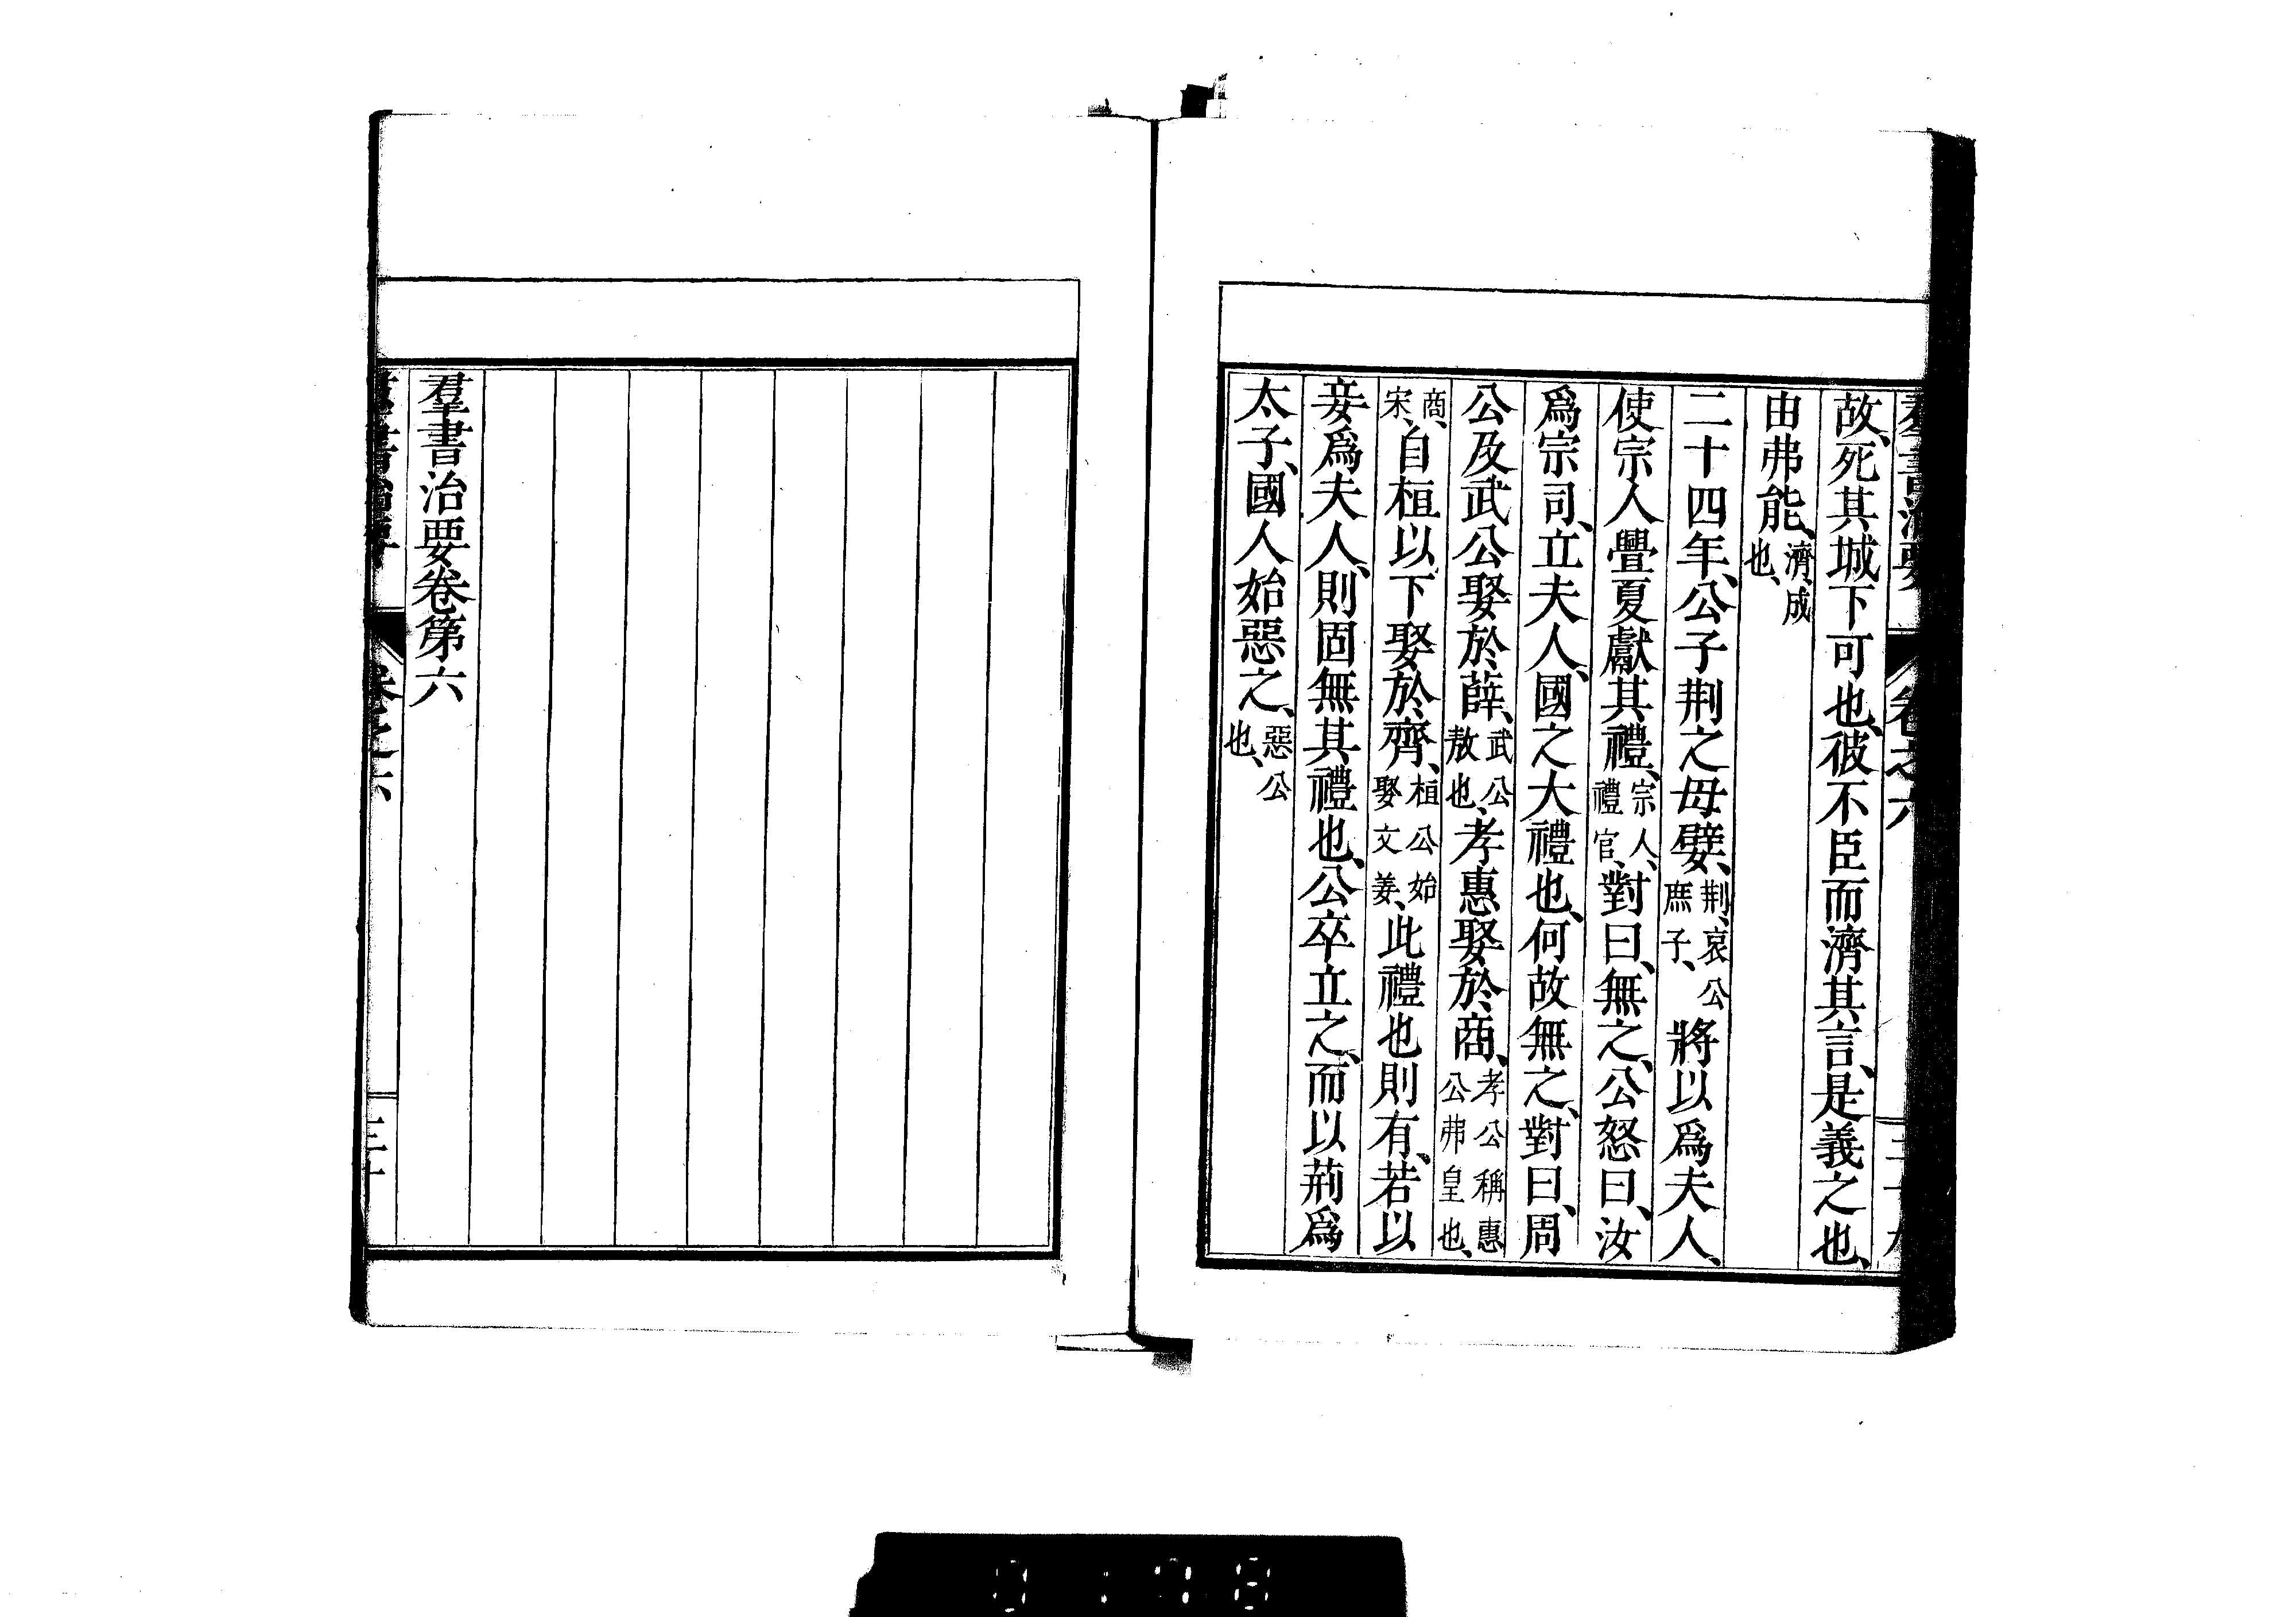 故、死其城下可也、彼不臣而濟其言、是義之也、
由弗能、濟、成也、
二十四年、公子荆之母嬖、荆、哀公庶子、將以爲夫人、
使宗人釁夏獻其禮、宗人、禮官、對曰、無之、公怒曰、汝
爲宗司、立夫人、國之大禮也、何故無之、對曰、周
公及武公娶於薛、武公敖也、孝惠娶於商、孝公稱惠公弗皇也、
商、宋、自桓以下娶於齊、桓公始娶文姜、此禮也則有、若以
妾爲夫人、則固無其禮也、公卒立之、而以荊爲
太子、國人始惡之、惡公也、
羣書治要卷第六
卷之六